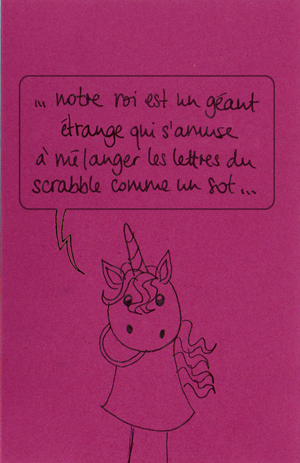 ... notre roi est un géant
étrange qui s'amuse
à mélanger les lettres du
scrabble comme un sot...